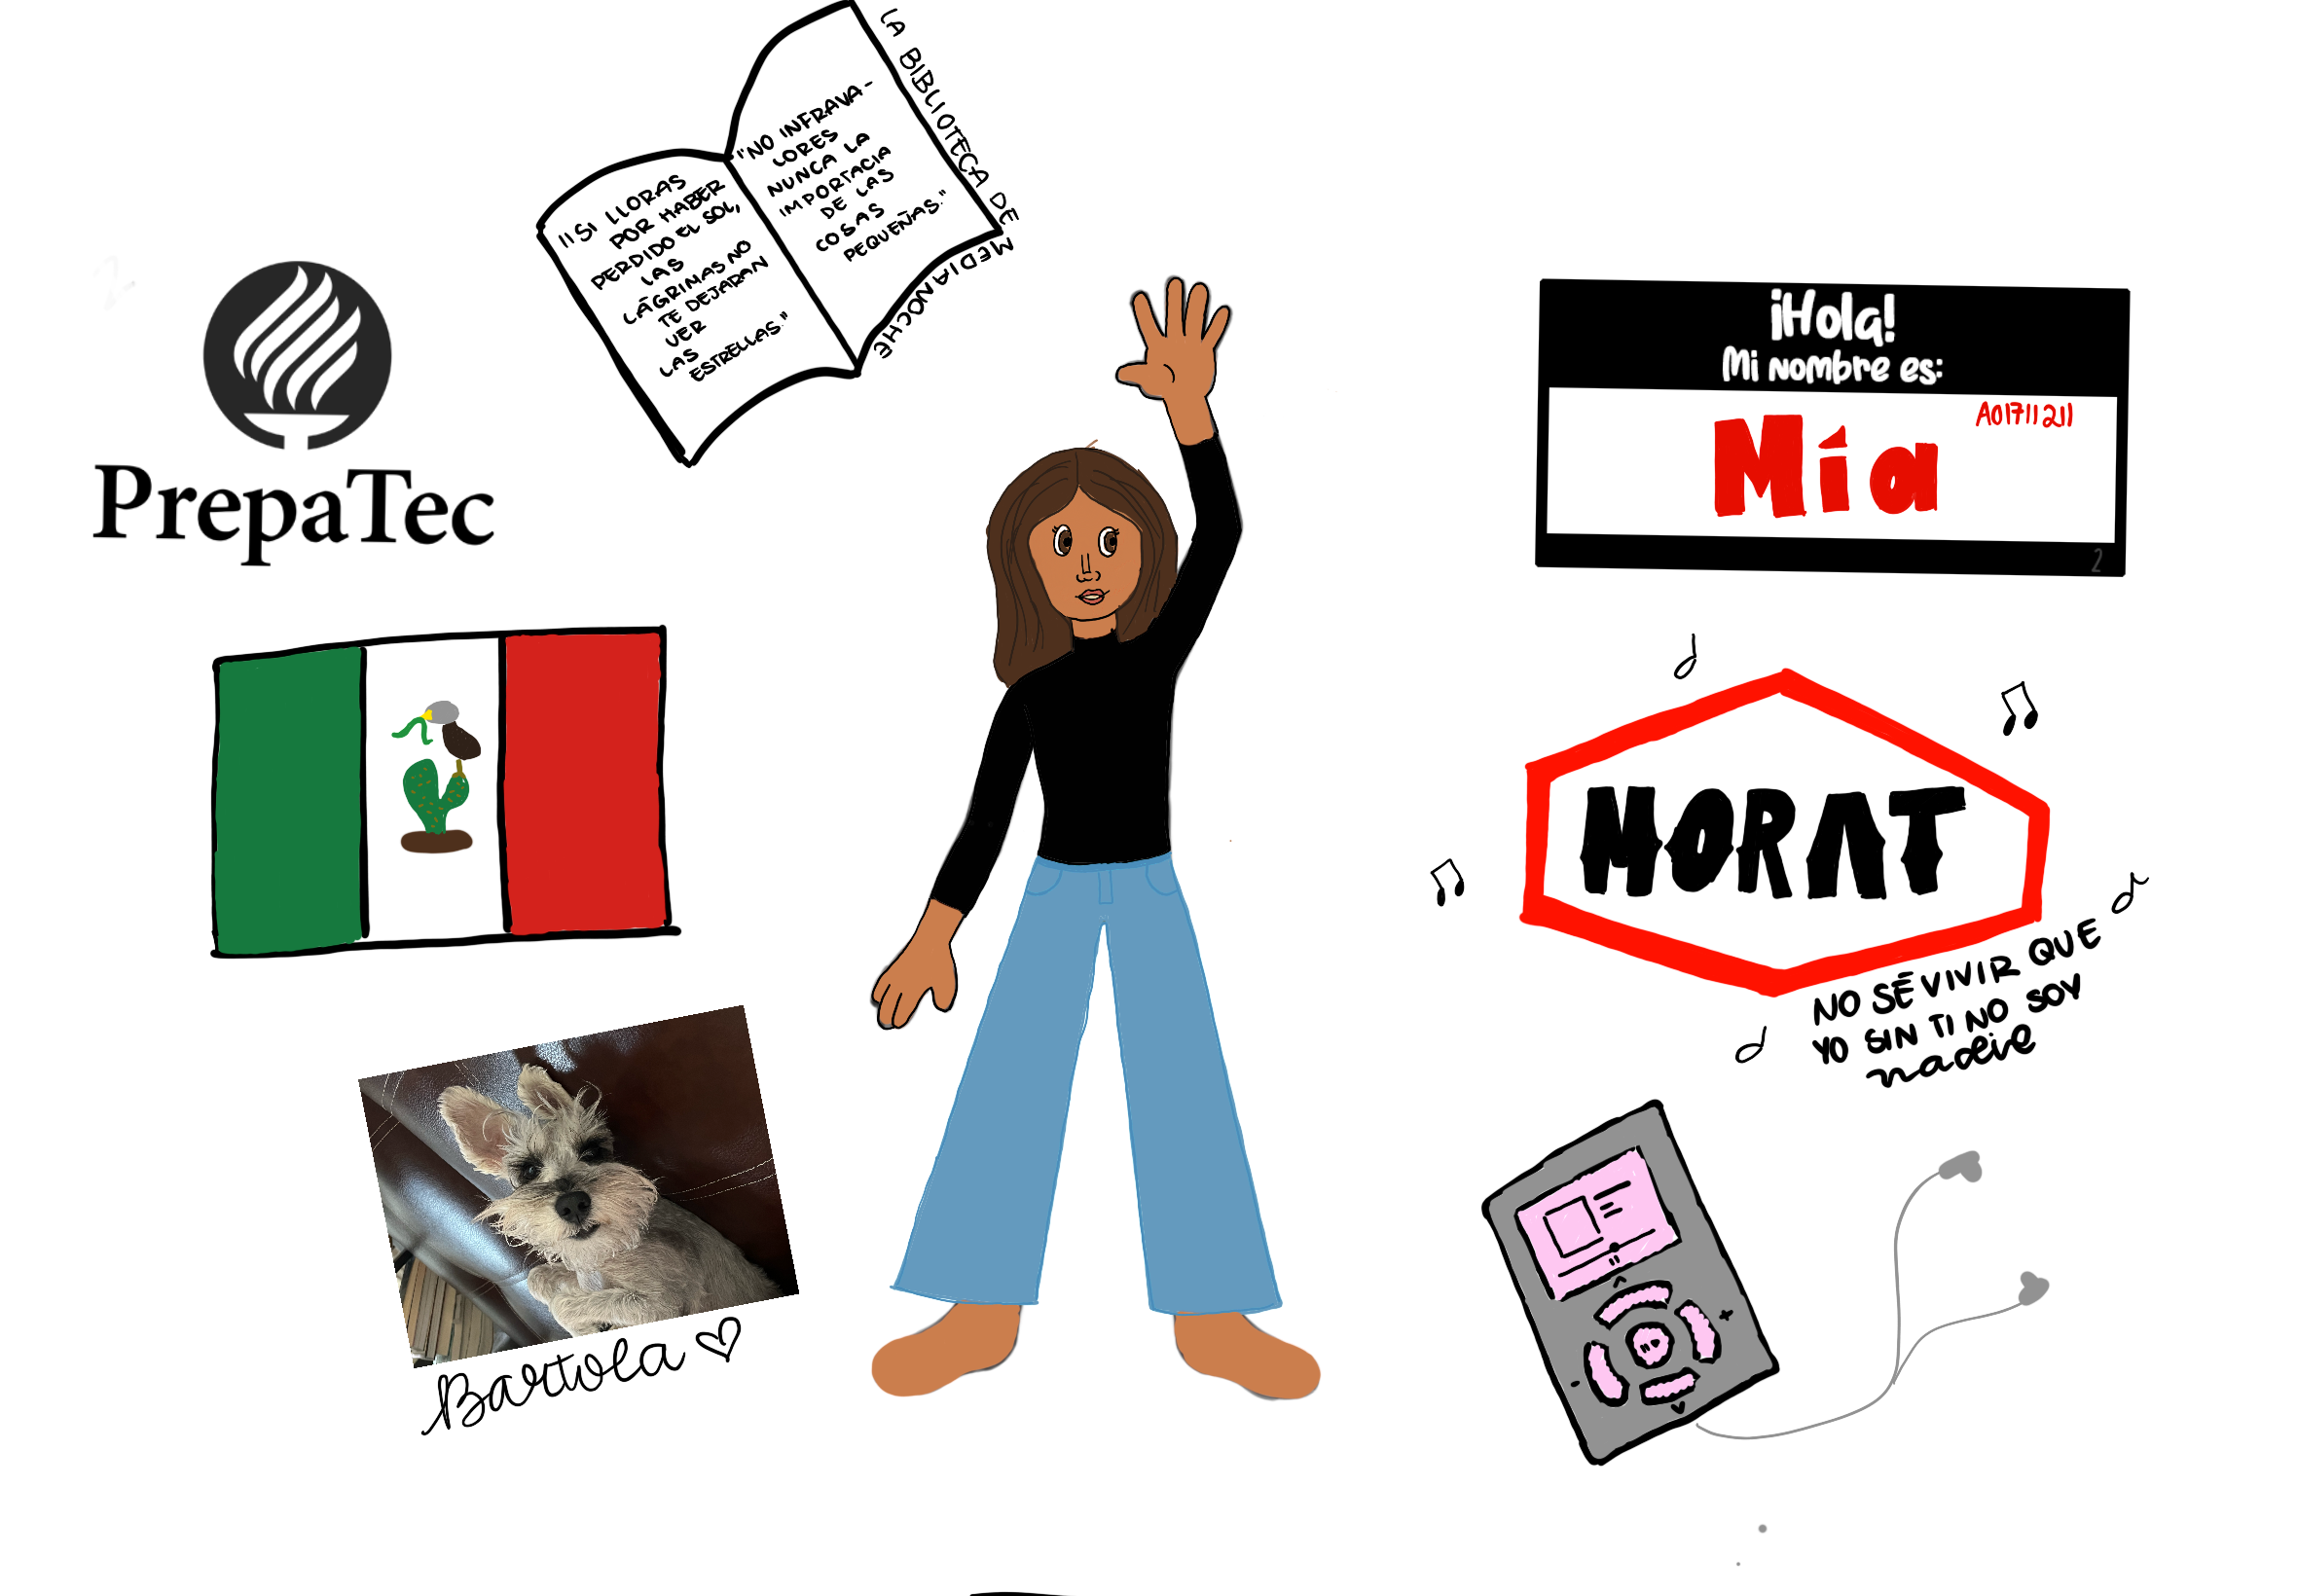 LA BIBLIOTECA DE
MEDIANOCHE
"SI LLORAS
POR HABER
PERDIDO EL SOL,
LAS
LÁGRIMAS NO
TE DEJARAN
VER
LAS
ESTRELLAS."
"NO INFRAVA-
LORES
NUNCA LA
IMPORTACIA
DE LAS
COSAS
PEQUEÑAS."
PrepaTec
¡Hola!
Mi nombre es:
A01711211
Mía
2
MORAT
NO SÉ VIVIR QUE
YO SIN TI NO SOY
nadie
Bartola